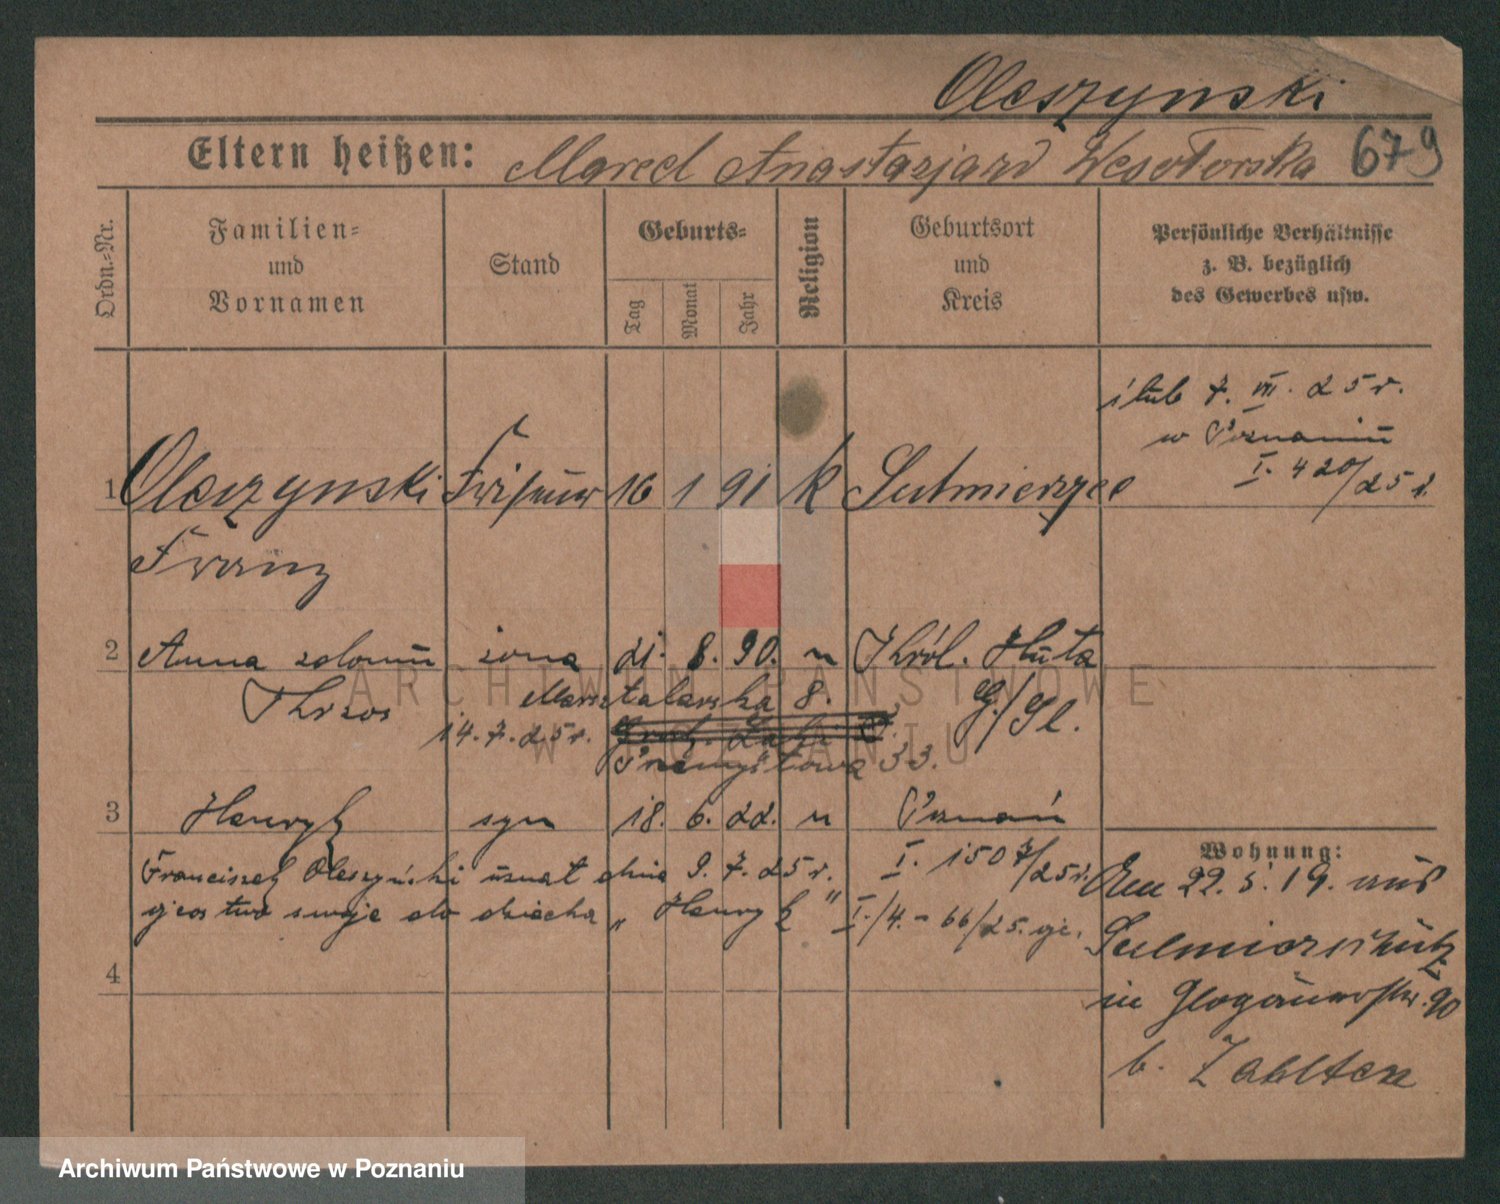 Oleszynski
Eltern heißen: Marcel Anastazja Wesołowska 679
Ordn.-Nr.
Familien-
und
Vornamen
Stand
Geburts-
Tag
Monat
Jahr
Religion
Geburtsort
und
Kreis
Persönliche Verhältnisse
z. B. bezüglich
des Gewerbes usw.
ślub 7. VII. 25 r.
w Poznaniu
I. 420/25 r.
1 Oleszynski Friseur 16 1 91 k Sulmierzyce
Franz
2 Anna zdomu żona 21. 8. 90. " Król. Huta
Marsztalarska 8. G/Sl.
14.7.25 r.
Przemysłowa 33.
3 Henryk syn 18. 6. 22. " Poznań
Franciszek Oleszyński uznał dnia 9. 7. 25 r. I. 1507/25 r.
ojcostwo swoje do dziecka „Henryk" I./4. - 66/25.
4
Wohnung:
Am 22. 5. 19. aus
Sulmierschütz
in Glogauerstr. 90
b.
ARCHIWUM PAŃSTWOWE
W POZNANIU
Archiwum Państwowe w Poznaniu